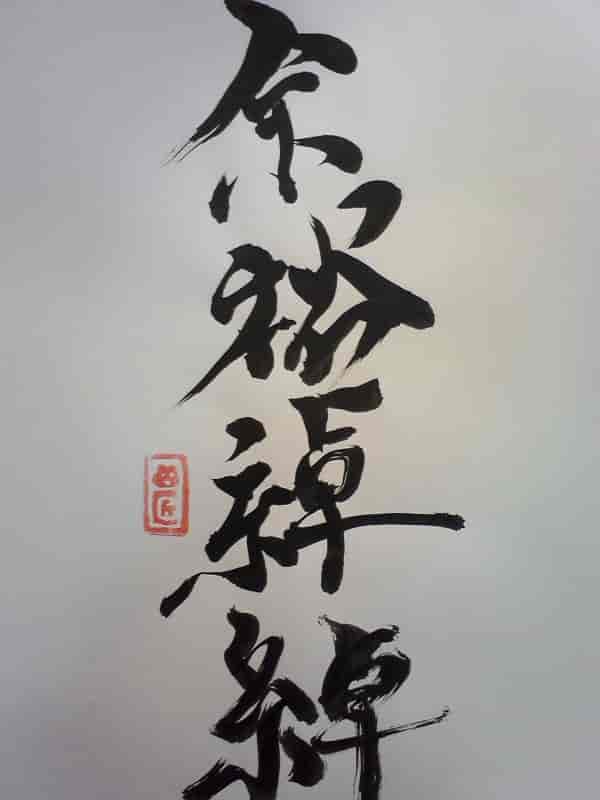 余裕綽綽